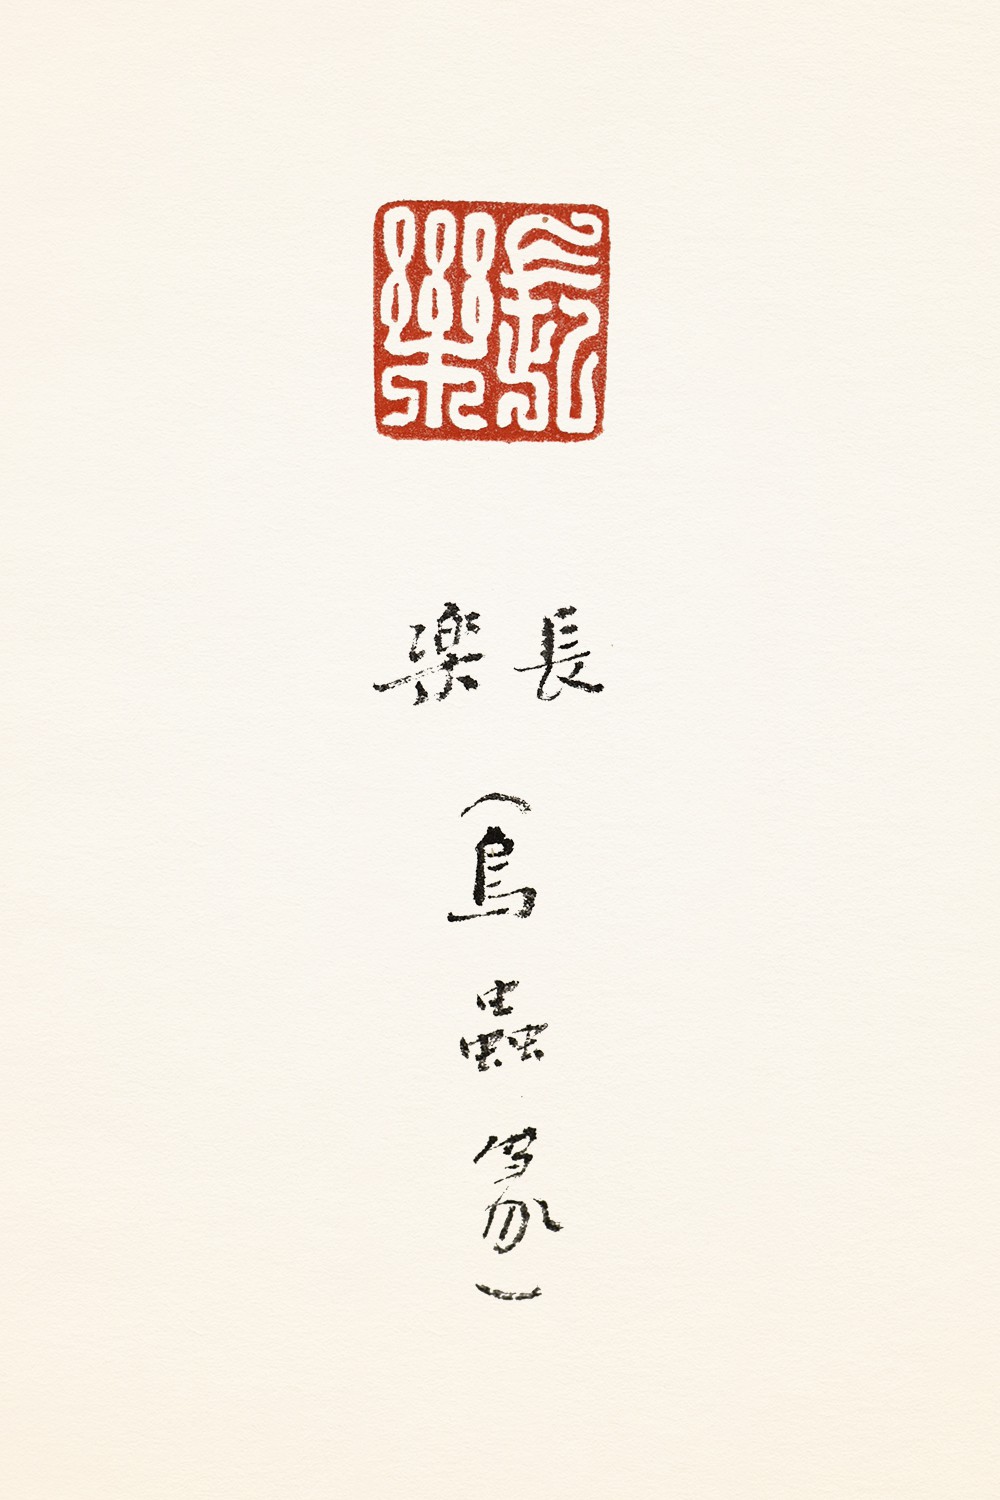 長樂
長楽
（鳥蟲篆）